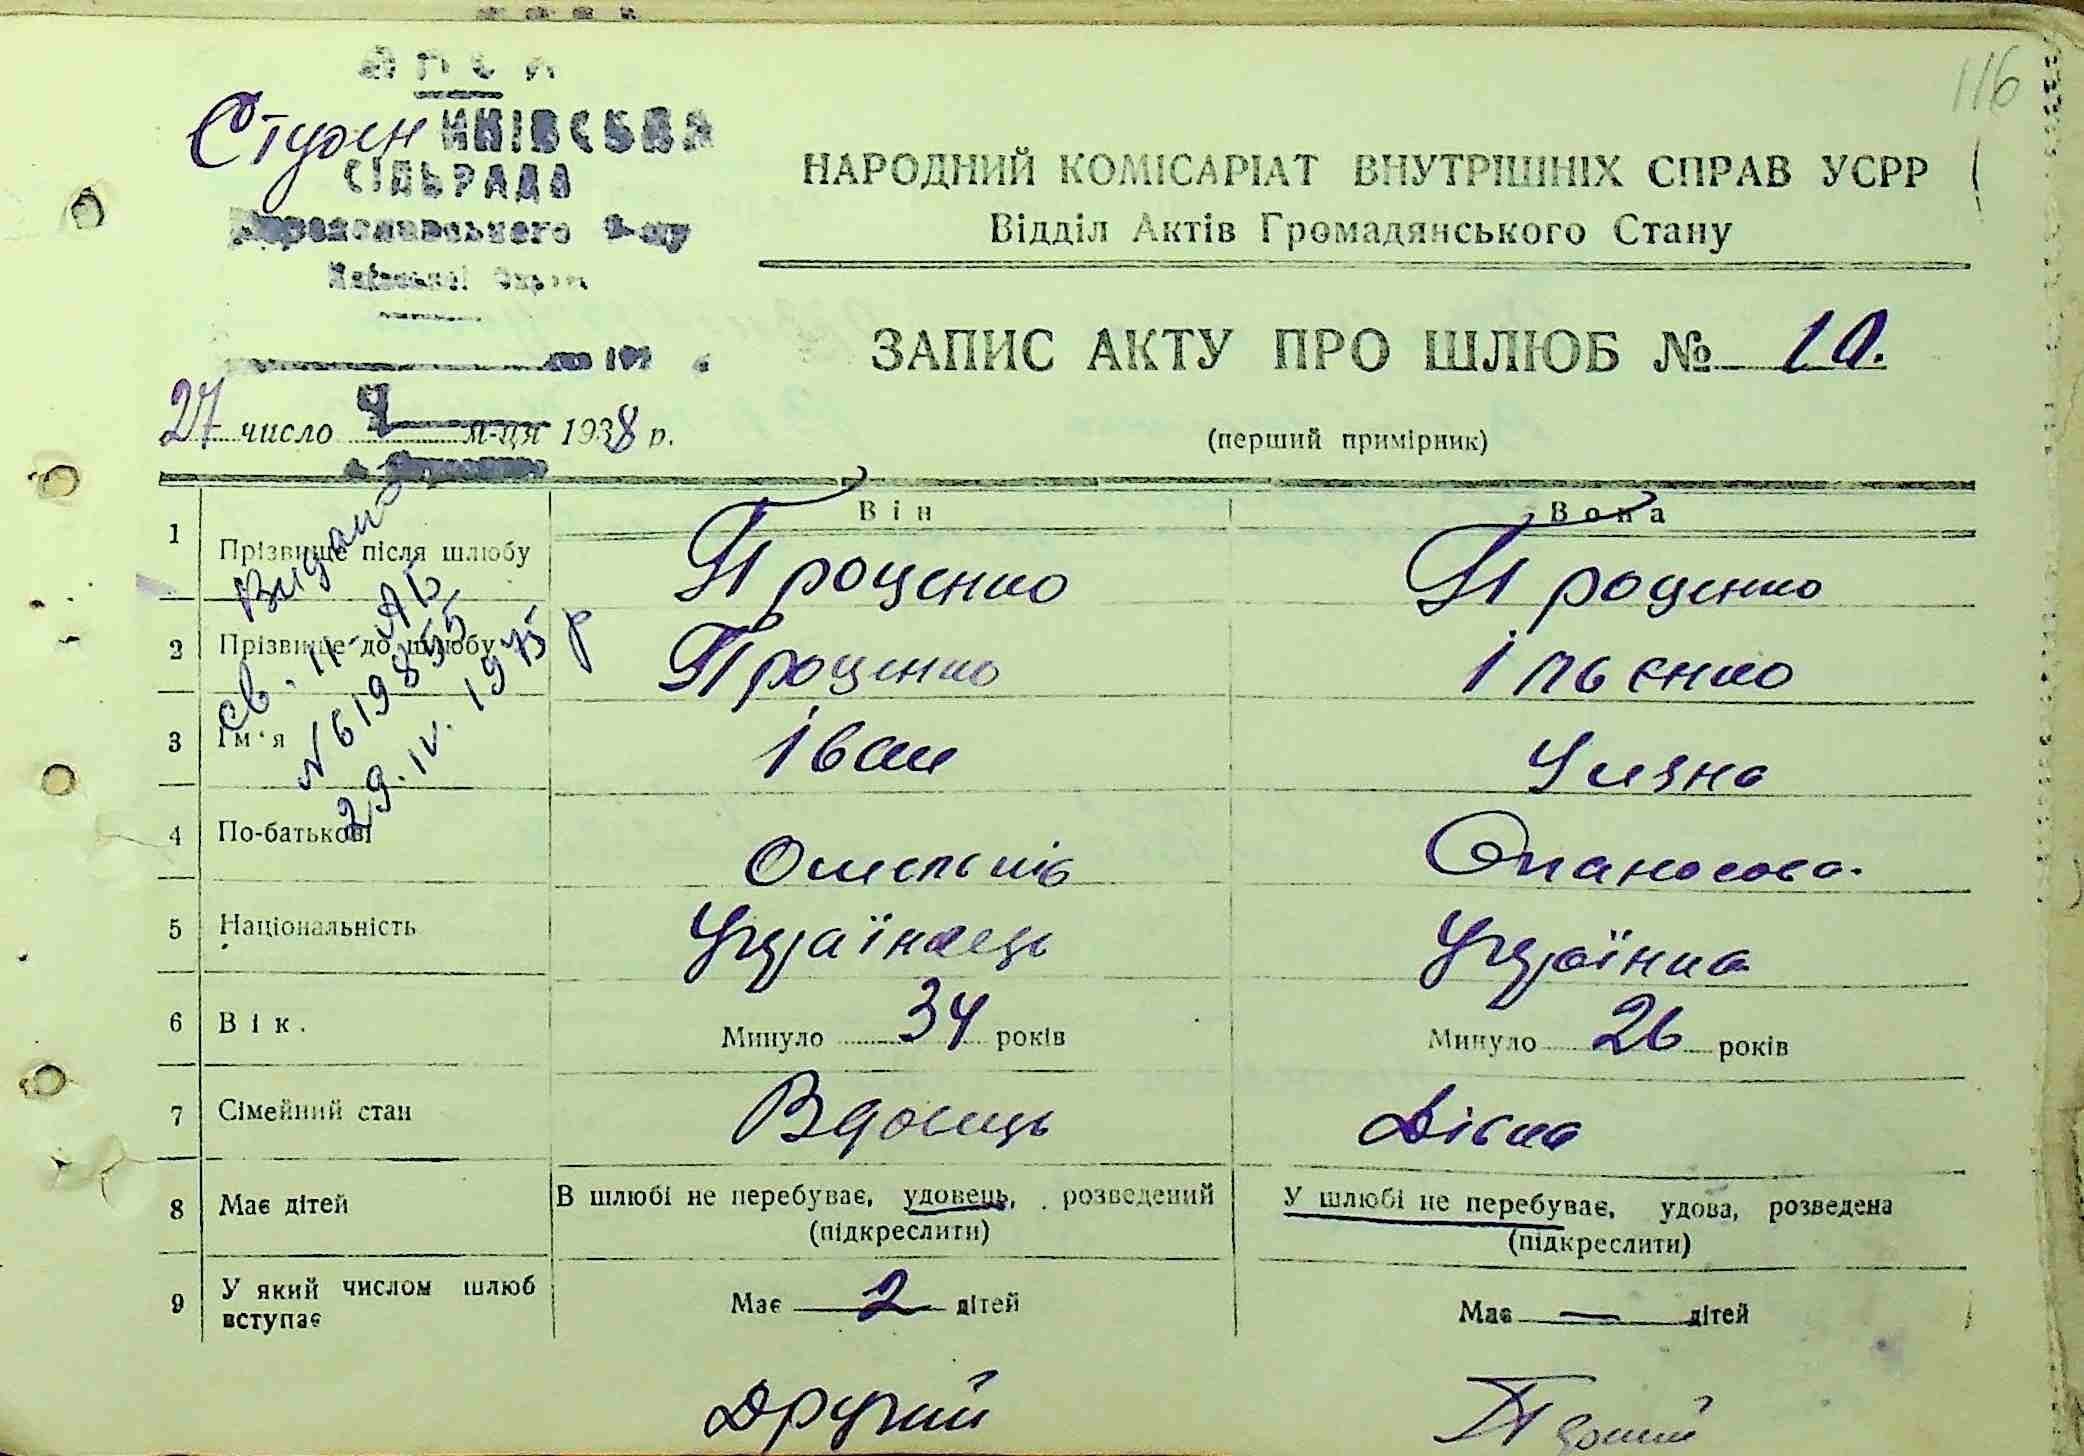 116
УСРР
Студениківська
СІЛЬРАДА
Переяславського р-ну
Київської Округи
НАРОДНИЙ КОМІСАРІАТ ВНУТРІШНІХ СПРАВ УСРР
Відділ Актів Громадянського Стану
ЗАПИС АКТУ ПРО ШЛЮБ № 10.
27 число 4 м-ця 1938 р.
(перший примірник)
Він Вона
1 Прізвище після шлюбу Проценко Проценко
2 Прізвище до шлюбу Проценко Ільєнко
3 Ім'я Іван
4 По-батькові Омельків Опанасова.
5 Національність Українець Українка
6 Вік. Минуло 34 років Минуло 26 років
7 Сімейний стан Вдовець Дівка
8 Має дітей В шлюбі не перебуває, удовець, розведений У шлюбі не перебуває, удова, розведена
(підкреслити) (підкреслити)
9 У який числом шлюб вступає Має 2 дітей Має — дітей
Другий
Видано
св. II-АБ
N 619855
29.IV.1975 р